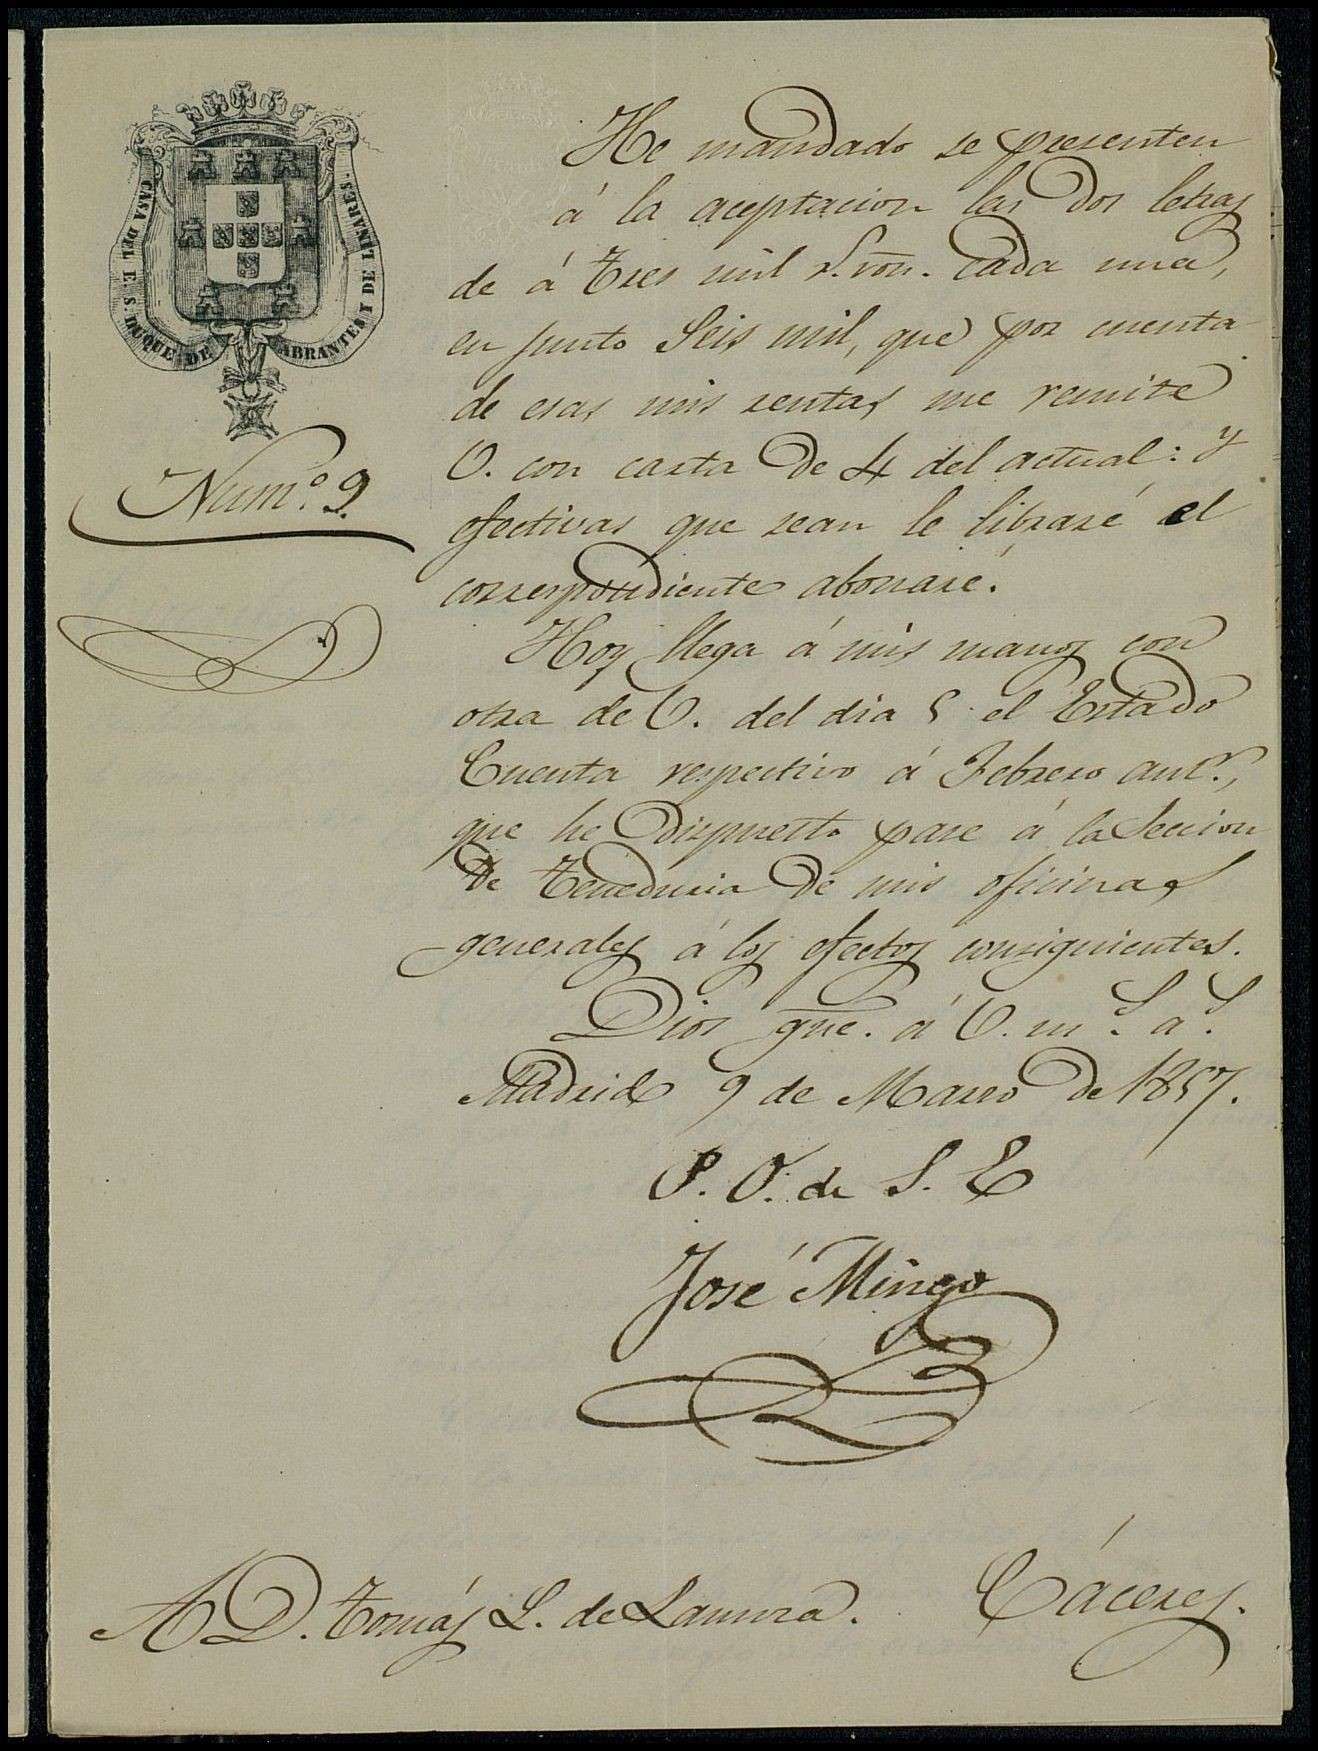 CASA DEL E. S. DUQUE DE ABRANTES Y DE LINARES.
Num.º 9.
He mandado se presenten
á la aceptacion las dos letras
de á tres mil r.s von. cada una,
en junto seis mil, que por cuenta
de esas mis rentas me remite
V. con carta de 4 del actual: y
efectivas que sean le libraré el
correspondiente abonaré.
Hoy llega á mis manos con
otra de V. del dia 5 el Estado
Cuenta respectivo á Febrero antr.,
que he dispuesto pase á la Seccion
de Teneduria de mis oficinas
generales á los efectos consiguientes.
Dios gue. á V. m.s a.s
Madrid 9 de Marzo de 1857.
P. O. de S. E
José Mingo
A D. Tomás L. de Lamora. Cáceres.